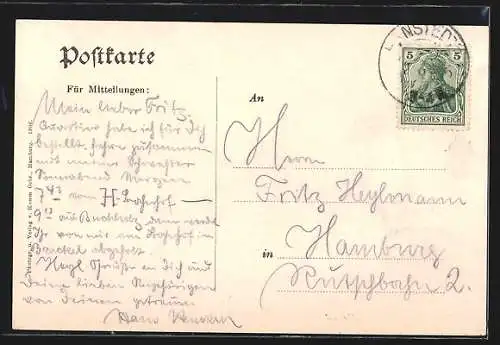 Postkarte
Für Mitteilungen:
Mein lieber Fritz,
Quartier habe ich für Dich
bestellt, fahre zusammen
mit meiner Schwester
Sonnabend Morgen
7 43 vom H-Bahnhof
9 12 auf dann werdet
Ihr von mir am Bahnhof im
abgeholt.
Herzl Grüße an Dich und
Deine lieben Angehörigen
von Deinem getreuen
Hans
An
Herrn
Fritz Heylmann
in Hamburg
Rutschbahn 2.
5 5
DEUTSCHES REICH